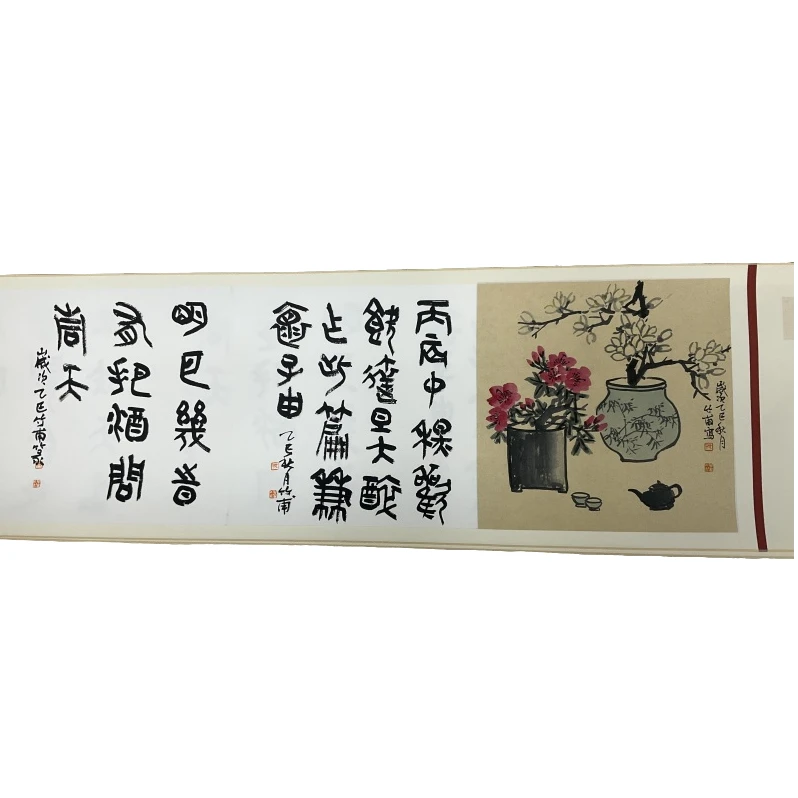 歲次乙巳秋月
竹甫寫
丙辰中秋歡
飲達旦大醉
作此篇兼
懷子由
乙巳秋月竹甫
明月幾時
有把酒問
青天
歲次乙巳竹甫篆